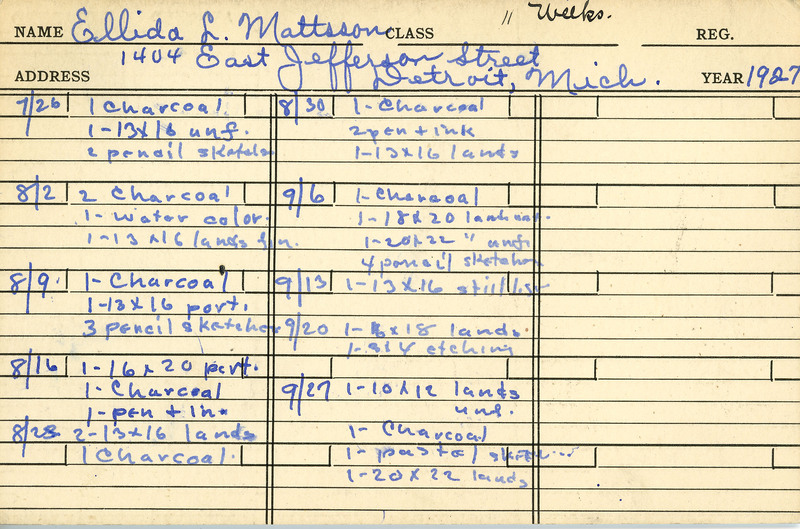 11 Weeks.
NAME Ellida L. Mattsson CLASS REG.
1404 East Jefferson Street
ADDRESS Detroit, Mich. YEAR 1927
7/26 1 Charcoal
1-13x16 unf.
2 pencil sketches
8/2 2 Charcoal
1- water color.
1-13x16 lands fin.
8/9. 1- Charcoal
1-13x16 port.
3 pencil sketches
8/16 1-16x20 port.
1- Charcoal
1- pen + ink
8/23 2-13x16 lands
1 Charcoal.
8/30 1- Charcoal
2 pen + ink
1-13x16 lands
9/6 1- Charcoal
1-18x20
1-20x22 " unf.
4 pencil sketches
9/13 1-13x16 still life
9/20 1- x18 lands.
etching
9/27 1-10x12 lands
unf.
1- Charcoal
1- pastel sketch
1-20x22 lands